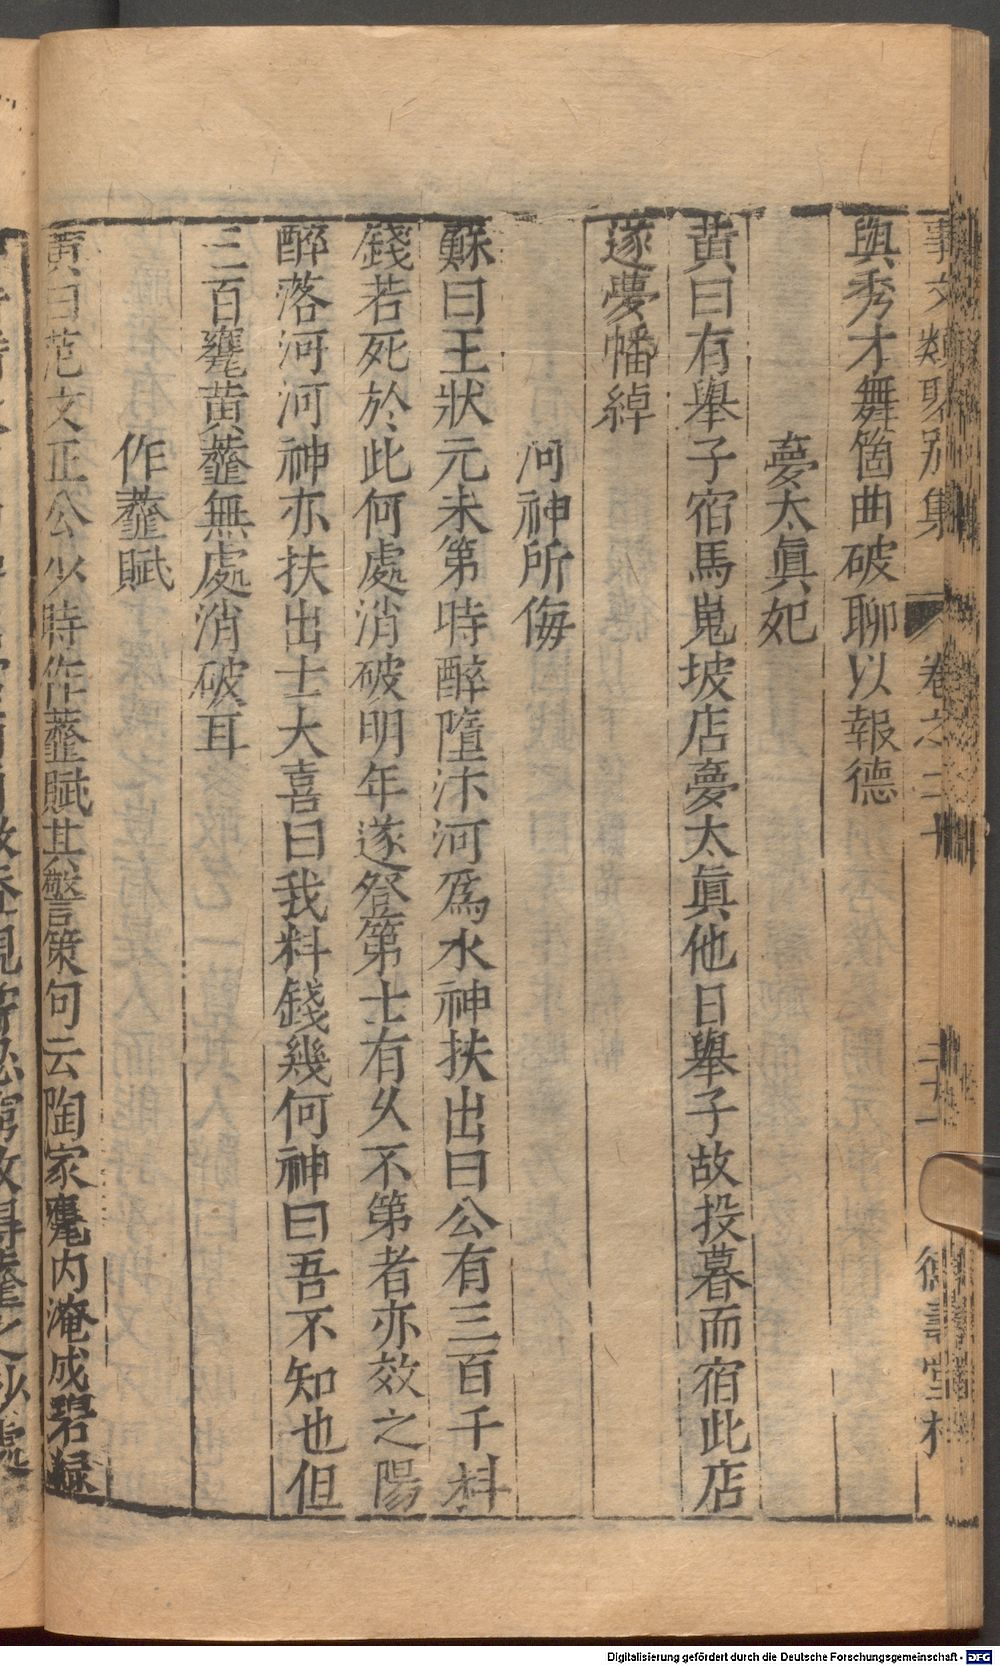 事文類聚別集 卷之二十 二十一 德壽堂梓
與秀才舞箇曲破聊以報德
夢太眞妃
黃曰有舉子宿馬嵬坡店夢太眞他日舉子故投暮而宿此店
遂夢幡綽
河神所侮
蘇曰王狀元未第時醉墮汴河爲水神扶出曰公有三百千料
錢若死於此何處消破明年遂登第士有久不第者亦效之陽
醉落河河神亦扶出士大喜曰我料錢幾何神曰吾不知也但
三百甕黃虀無處消破耳
作虀賦
黃曰范文正公少時作虀賦其警策句云陶家甕內淹成碧緑
Digitalisierung gefördert durch die Deutsche Forschungsgemeinschaft - DFG